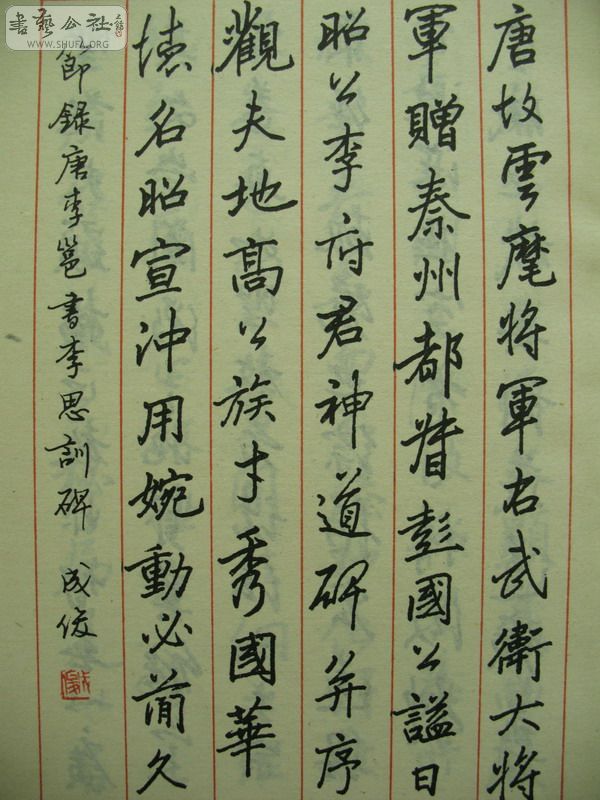 唐故雲麾將軍右武衛大將
軍贈秦州都督彭國公謚曰
昭公李府君神道碑并序
觀夫地高公族才秀國華
德名昭宣沖用婉動必簡久
節錄唐李邕書李思訓碑 成俊
書藝公社
WWW.SHUFA.ORG